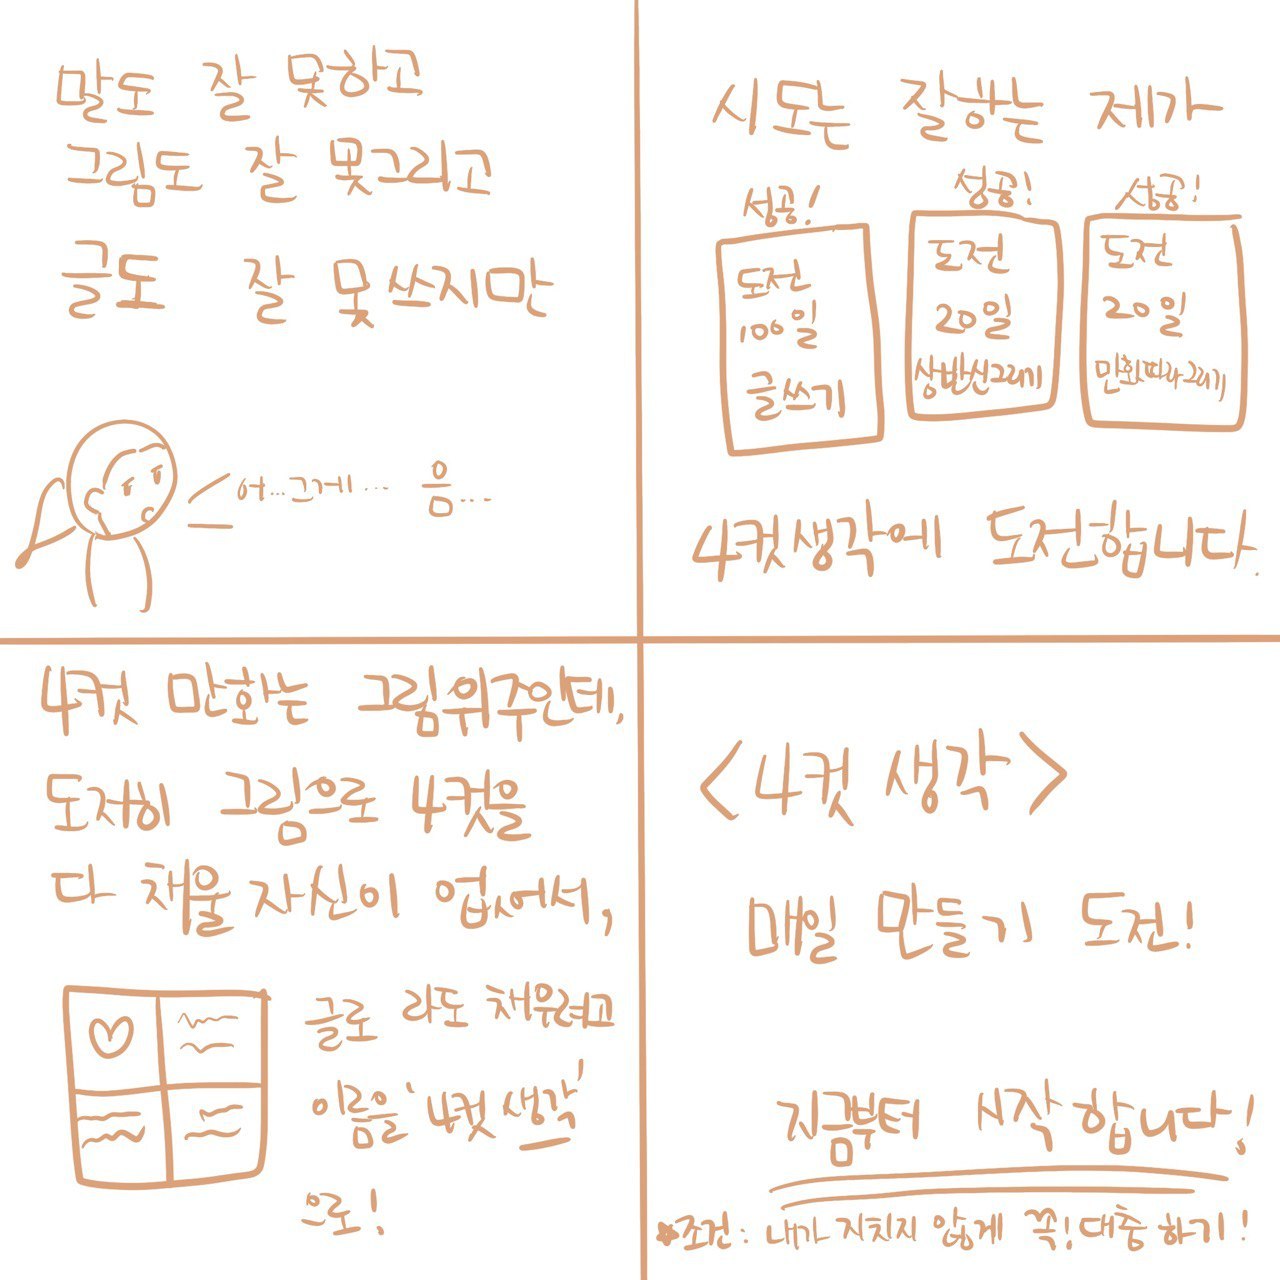 말도 잘 못하고
그림도 잘 못그리고
글도 잘 못쓰지만
어...그게... 음...
시도는 잘하는 제가
성공!
도전
100일
글쓰기
성공!
도전
20일
상반신그리기
성공!
도전
20일
만화따라그리기
4컷생각에 도전합니다.
4컷 만화는 그림위주인데,
도저히 그림으로 4컷을
다 채울 자신이 없어서,
글로 라도 채우려고
이름을 '4컷 생각'
으로!
<4컷 생각>
매일 만들기 도전!
지금부터 시작합니다!
*조건: 내가 지치지 않게 꼭! 대충 하기!